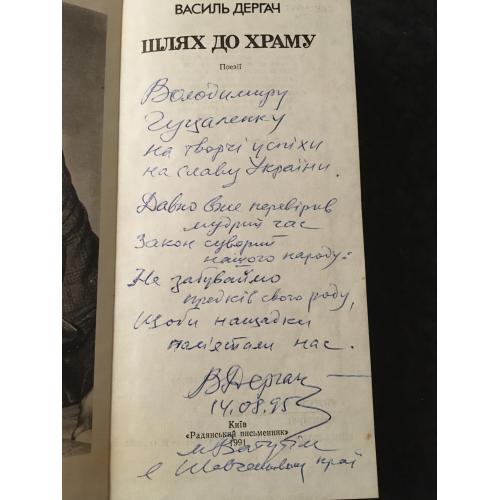 ВАСИЛЬ ДЕРГАЧ
ШЛЯХ ДО ХРАМУ
Поезії
Володимиру
Гуцаленку
на творчі успіхи
на славу України.
Давно вже перевірив
мудрий час
Закон суворий
нашого народу:
Не забуваймо
предків свого роду,
Щоби нащадки
пам'ятали нас.
В Дергач
14.08.95
Київ
«Радянський письменник»
1991
м Ватутін
в Шевченковому краї